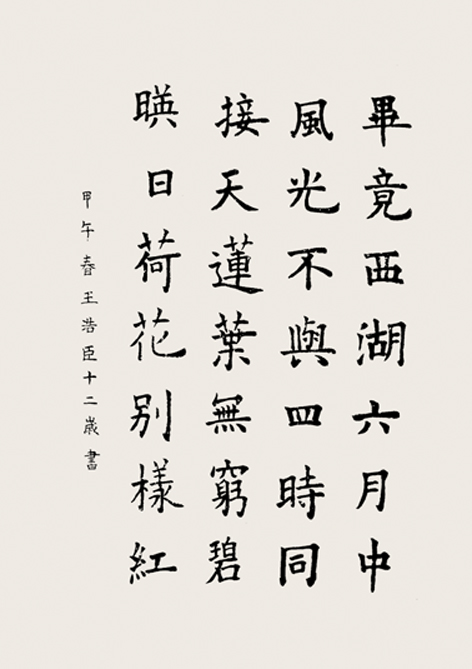 畢竟西湖六月中
風光不與四時同
接天蓮葉無窮碧
暎日荷花别樣紅
甲午春王浩臣十二歲書